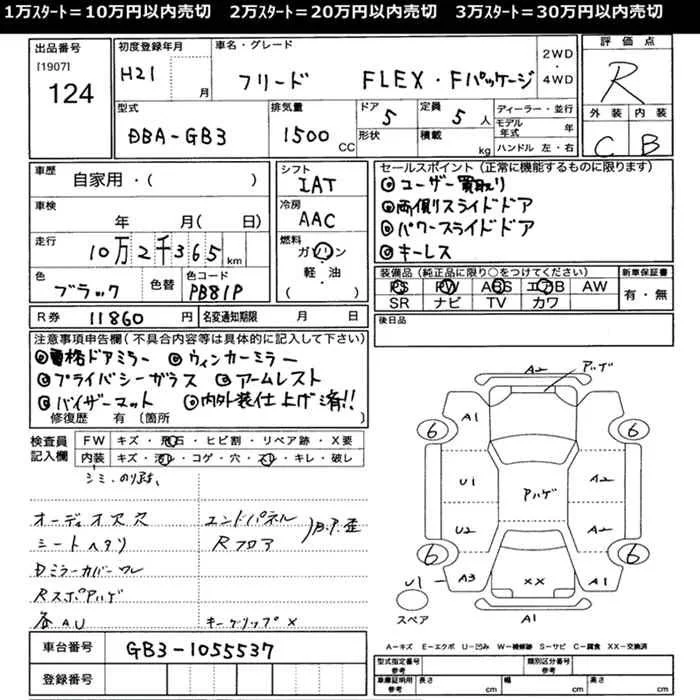 1万ｽﾀｰﾄ＝10万円以内売切　2万ｽﾀｰﾄ＝20万円以内売切　3万ｽﾀｰﾄ＝30万円以内売切
出品番号
[1907]
124
初度登録年月
H21
月
車名・グレード
フリード FLEX・Fパッケージ
2WD
・
4WD
評価点
R
外装 内装
C B
型式
DBA-GB3
排気量
1500
CC
ドア
5
形状
定員
5 人
積載
kg
ディーラー・並行
モデル年式
年
ハンドル 左・右
車歴
自家用・( )
車検
年 月( 日)
走行
10万2千365 km
色
ブラック
色替
色コード
PB81P
シフト
IAT
冷房
AAC
燃料
ガソリン
・
軽・油
( )
セールスポイント(正常に機能するものに限ります)
◎ユーザー買取り
◎両側スライドドア
◎パワースライドドア
◎キーレス
装備品(純正品に限り○をつけてください)
PS PW ABS エアB AW
SR ナビ TV カワ
新車保証書
有・無
R券 11860 円
名変通知期限 月 日
後日品
注意事項申告欄(不具合内容等は具体的に記入して下さい)
◎電格ドアミラー ◎ウィンカーミラー
◎プライバシーガラス ◎アームレスト
◎バイザーマット ◎内外装仕上げ済!!
修復歴 有 〔箇所
検査員
記入欄
FW キズ・飛石・ヒビ割・リペア跡・X要
内装 キズ・汚レ・コゲ・穴・スレ・キレ・破レ
シミ、のり跡、
オーディオ欠 穴
エンドパネル
シートヘタリ
Rフロア
)B.P.歪
Dミラーカバーワレ
Rスポアハゲ
各AU
キーグリップ×
車台番号
GB3-1055537
登録番号
A2
アハゲ
A1
6
6
U1
アハゲ
A2
U2
A2
6
6
U1
A3
XX
A1
スペア
A1
A－キズ E－エクボ U－凹み W－補修跡 S－サビ C－腐食 XX－交換済
型式指定番号
参考
類別区分番号
参考
車庫証明用
参考
長さ cm
幅 cm
高さ cm